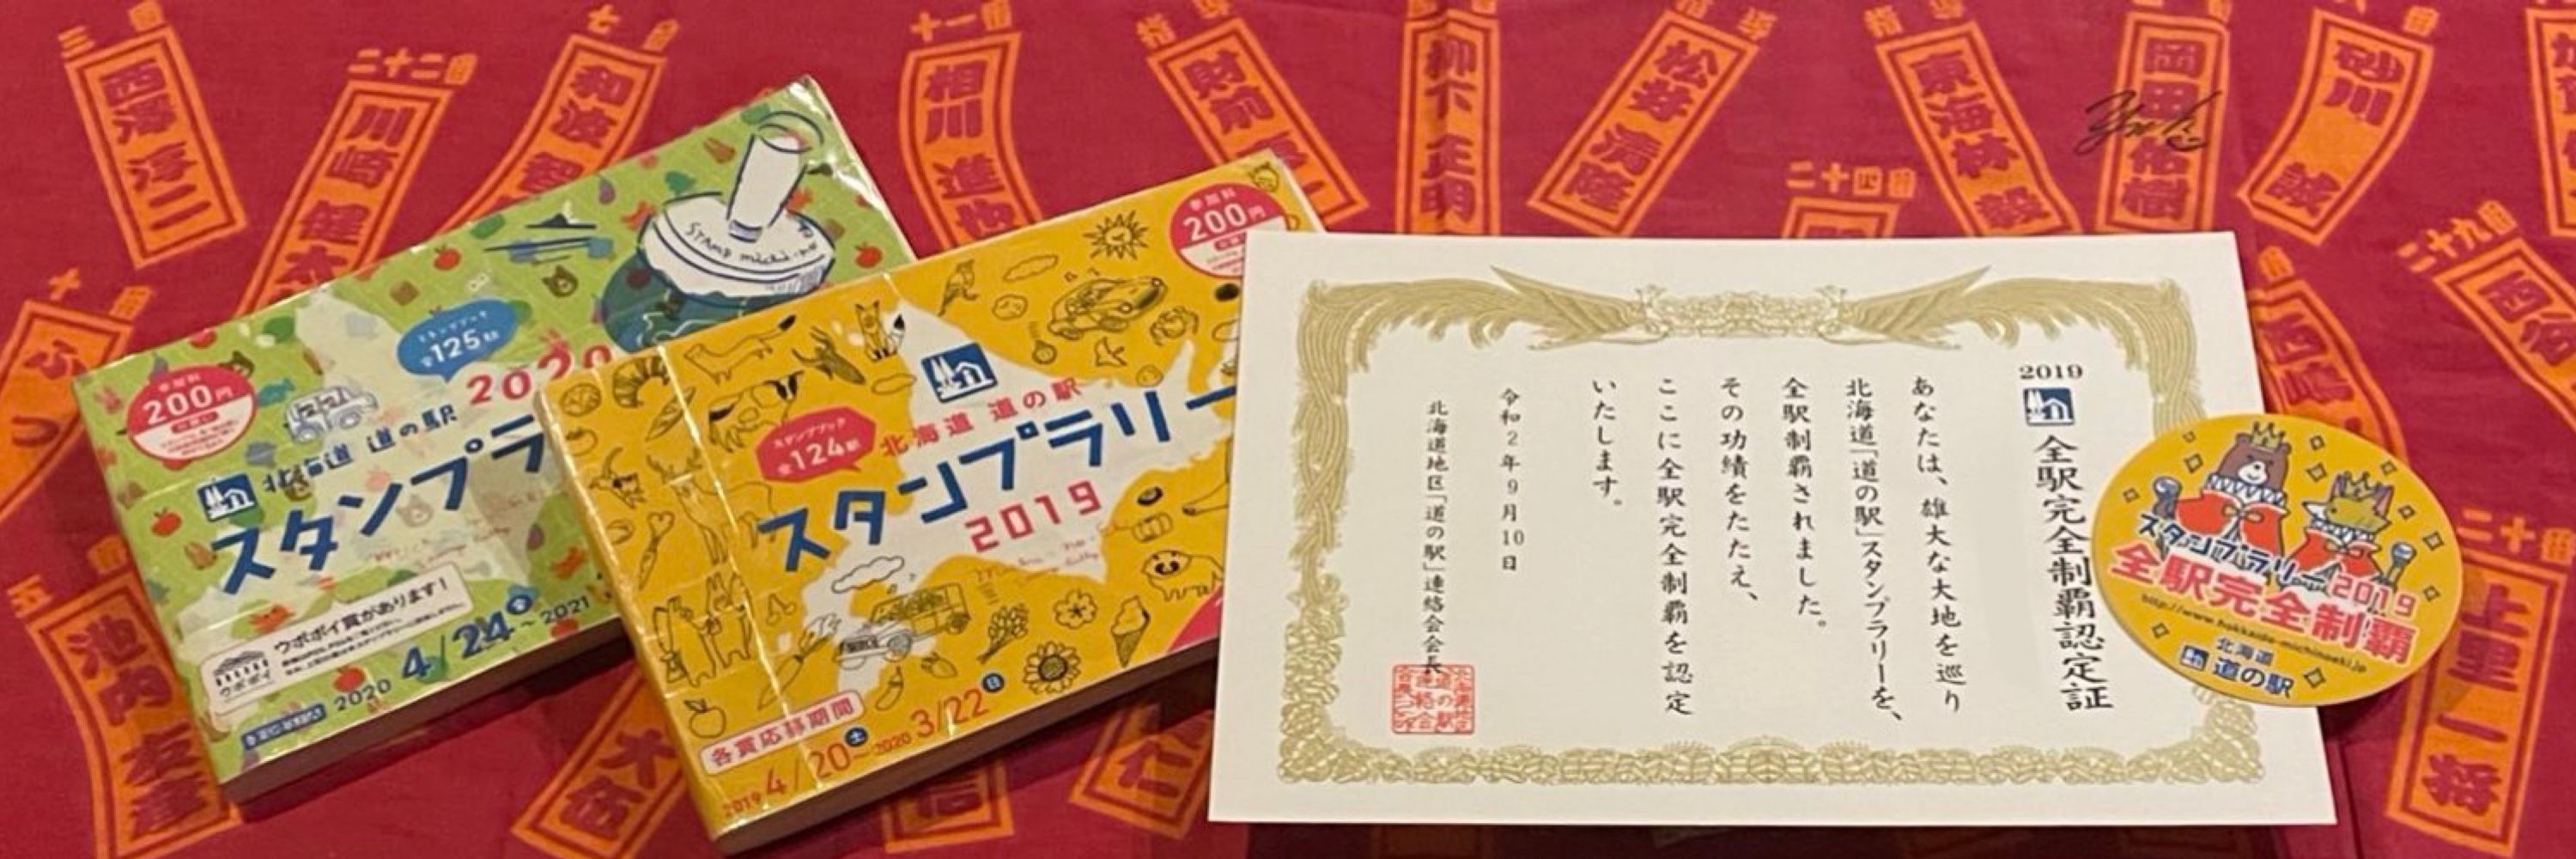 三番
西澤淳二
二十二番
川崎健太
七番
和波智
十一番
相川進也
特導
財前
柳下正明
松井清隆
特導
東海林毅
二十四番
岡田佑樹
八番
砂川誠
二十九番
十番
五番
池内友彦
大伍
信
仁
二十番
上里一将
参加料
200円
スタンプブック
全125駅
2020
北海道 道の駅
スタンプラ
Stamp michi-no
ウポポイ賞があります!
ウポポイ
2020 4/24金~2021
参加料
200円
スタンプブック
全124駅
北海道 道の駅
スタンプラリー
2019
各賞応募期間
2019 4/20土~2020 3/22日
2019
全駅完全制覇認定証
あなたは、雄大な大地を巡り
北海道「道の駅」スタンプラリーを、
全駅制覇されました。
その功績をたたえ、
ここに全駅完全制覇を認定
いたします。
令和2年9月10日
北海道地区「道の駅」連絡会会長
スタンプラリー2019
全駅完全制覇
http://www.hokkaido-michinoeki.jp
北海道
道の駅